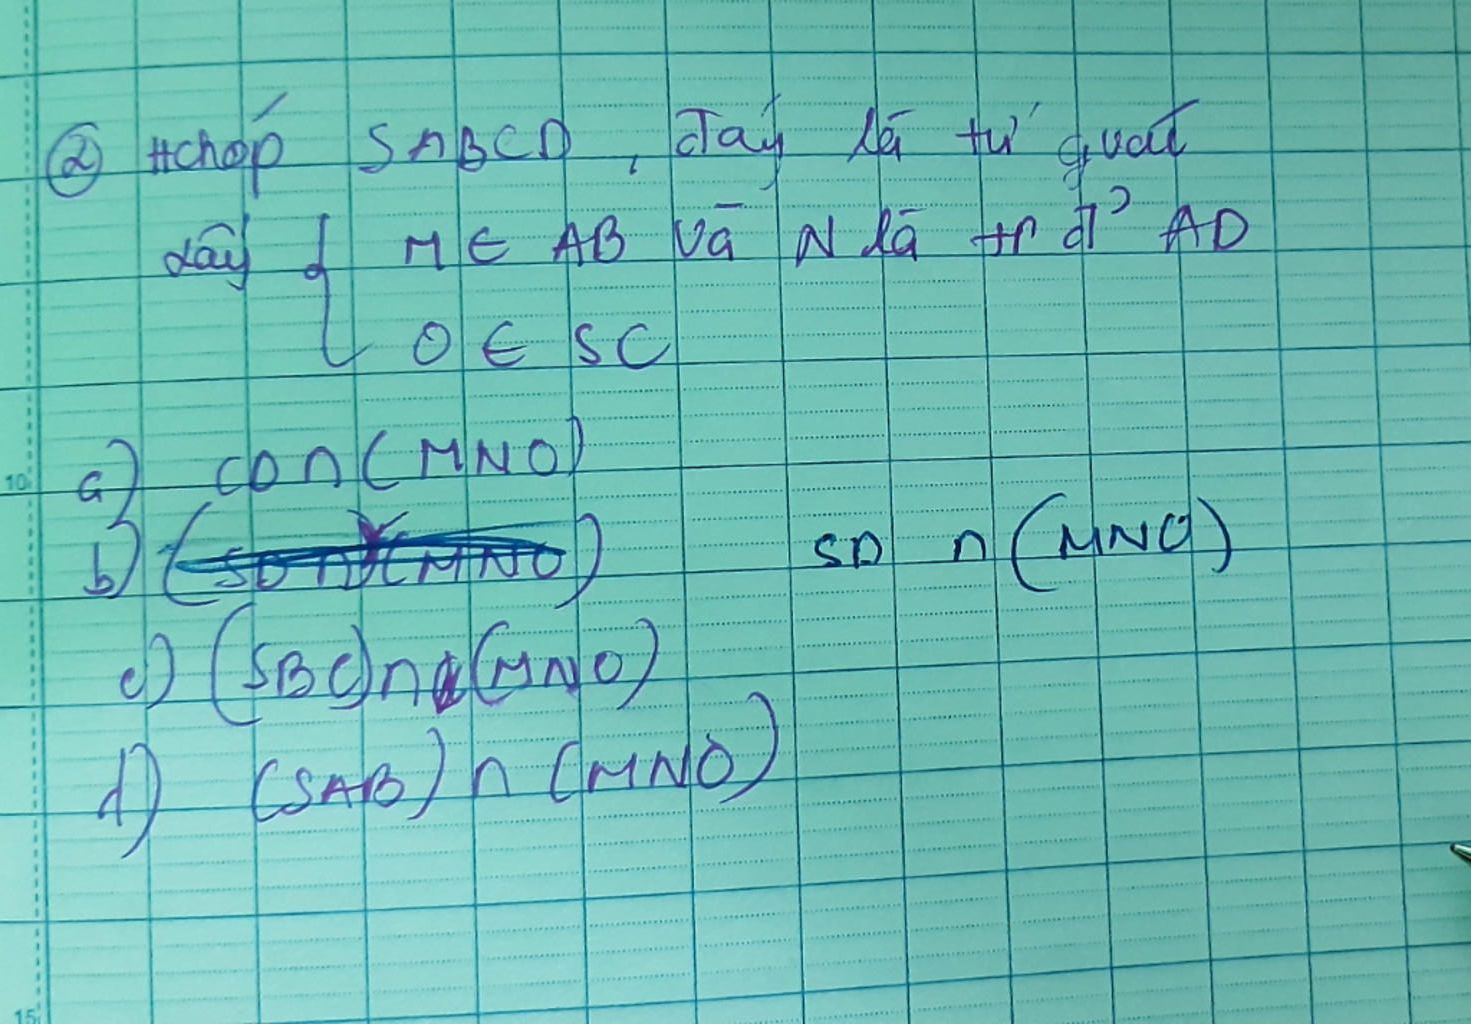 ② Hchóp SABCD, đáy là tứ giác
lấy { M ∈ AB và N là trđ' AD
O ∈ SC
10
a) CD ∩ (MNO)
b) SD ∩ (MNO)
c) (SBC) ∩ (MNO)
d) (SAB) ∩ (MNO)
15